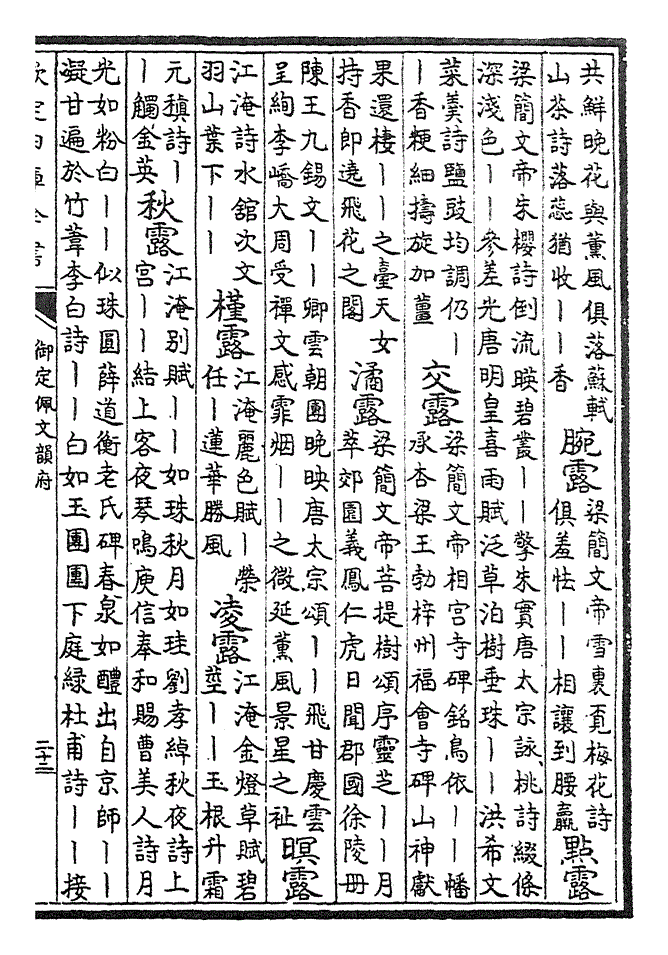 共鮮晚花與薰風俱落蘇軾
山茶詩落蕊猶收——香
腕露
梁簡文帝雪裏覔梅花詩
俱羞怯——相讓到腰羸
點露
梁簡文帝朱櫻詩倒流暎碧叢——擎朱實唐太宗詠桃詩綴條
深淺色——參差光唐明皇喜雨賦泛草泊樹垂珠——洪希文
菜羹詩鹽豉均調仍—
—香粳細擣旋加薑
交露
梁簡文帝相宮寺碑銘鳥依——幡
承杏梁王勃梓州福會寺碑山神獻
果還棲——之臺天女
持香即遶飛花之閣
潏露
梁簡文帝菩提樹頌序靈芝——月
萃郊園義鳳仁虎日聞郡國徐陵冊
陳王九錫文——卿雲朝團晚映唐太宗頌——飛甘慶雲
呈絢李嶠大周受禪文感霏烟——之微延薰風景星之祉
暝露
江淹詩水舘次文
羽山葉下——
槿露
江淹麗色賦—榮
任—蓮華勝風
凌露
江淹金燈草賦碧
莖——玉根升霜
元稹詩—
—觸金英
秋露
江淹別賦——如珠秋月如珪劉孝綽秋夜詩上
宮——結上客夜琴鳴庾信奉和賜曹美人詩月
光如粉白——似珠圓薛道衡老氏碑春泉如醴出自京師——
凝甘遍於竹葦李白詩——白如玉團團下庭緑杜甫詩——接
欽定四庫全書
御定佩文韻府
二十三